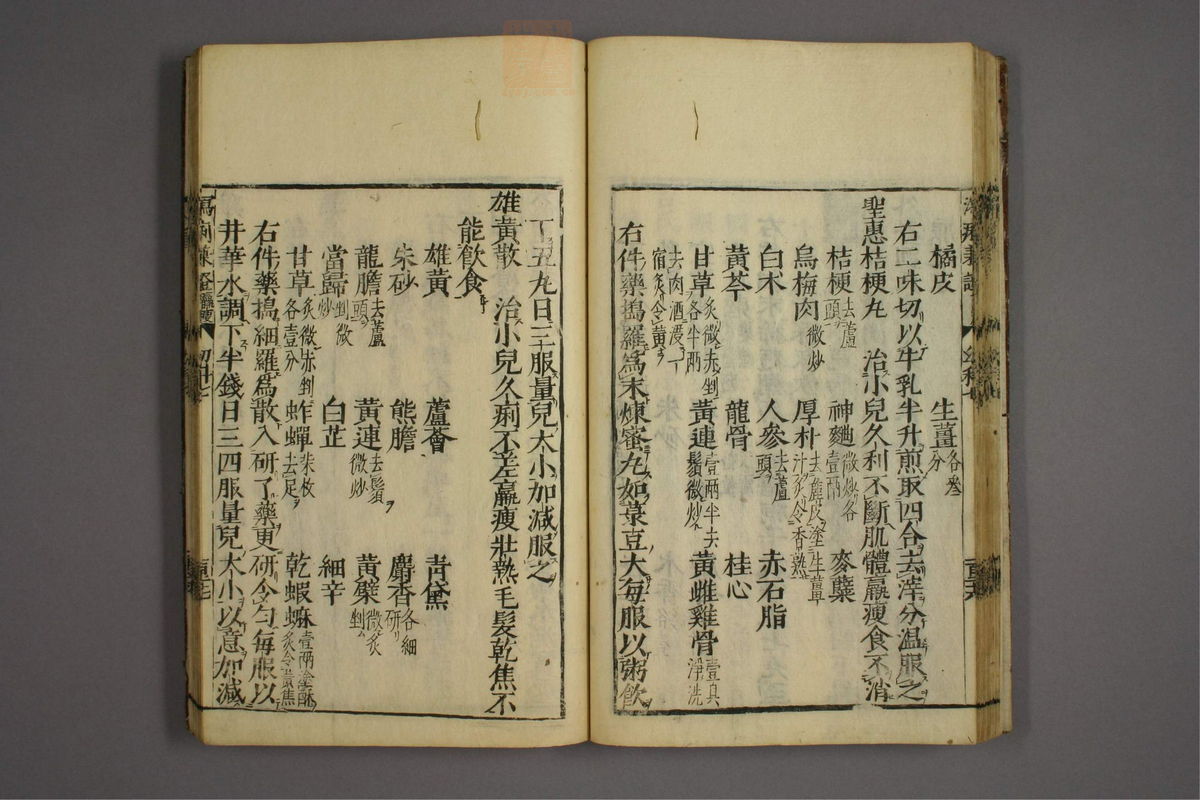 橘皮　生薑各叄分
右二味切以牛乳半升煎取四合去滓分温服之
聖惠桔梗丸　治小兒久利不斷肌體羸瘦食不消
桔梗去蘆頭　神麯微炒各壹兩　麥蘖
烏梅肉微炒　厚朴去麁皮塗生薑汁炙令香熟
白术　人參去蘆頭　赤石脂
黃芩　龍骨　桂心
甘草炙微赤剉各半兩　黃連壹兩半去鬚微炒　黃雌雞骨壹具淨洗
去肉酒浸一宿炙令黃
右件藥搗羅爲末煉蜜丸如菉豆大每服以粥飲
下五丸日三服量兒大小加減服之
雄黃散　治小兒久痢不差羸瘦壯熱毛髮乾焦不
能飲食
雄黃　蘆薈　青黛
朱砂　熊膽　麝香各細研
龍膽去蘆頭　黃連去鬚微炒　黃蘗微炙剉
當歸剉微炒　白芷　細辛
甘草炙微赤剉各壹分　蚱蟬柒枚去足　乾蝦蟇壹兩塗酥炙令黃焦
右件藥搗細羅爲散入研了藥更研令勻每服以
井華水調下半錢日三四服量兒大小以意加減